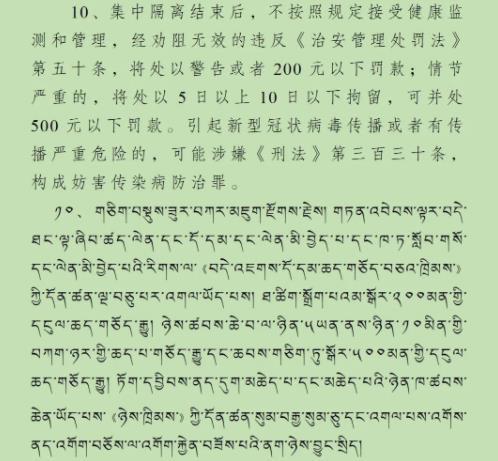 10、集中隔离结束后，不按照规定接受健康监
测和管理，经劝阻无效的违反《治安管理处罚法》
第五十条，将处以警告或者 200 元以下罚款；情节
严重的，将处以 5 日以上 10 日以下拘留，可并处
500 元以下罚款。引起新型冠状病毒传播或者有传
播严重危险的，可能涉嫌《刑法》第三百三十条，
构成妨害传染病防治罪。
༡༠、 གཅིག་བསྡུས་ཟུར་བཀར་མཇུག་རྫོགས་རྗེས། གཏན་འབེབས་ལྟར་བདེ་
ཐང་ལྟ་ཞིབ་ཚད་ལེན་དང་དོ་དམ་དང་ལེན་མི་བྱེད་པ་དང་ཁ་ཏ་སློབ་གསོ་
དང་ལེན་མི་བྱེད་པའི་རིགས་ལ་《བདེ་འཇགས་དོ་དམ་ཆད་གཅོད་བཅའ་ཁྲིམས་》
ཀྱི་དོན་ཚན་ལྔ་བཅུ་པར་འགལ་ཡོད་པས། ཐ་ཚིག་སྒྲོག་པའམ་སྒོར་༢༠༠མན་གྱི་
དངུལ་ཆད་གཅོད་རྒྱུ། ཉེས་ཚབས་ཆེ་བ་ལ་ཉིན་༥ཡན་ནས་ཉིན་༡༠མིན་གྱི་
བཀག་ཉར་གྱི་ཆད་པ་གཅོད་རྒྱུ་དང་ཆབས་གཅིག་ཏུ་སྒོར་༥༠༠མན་གྱི་དངུལ་
ཆད་གཅོད་རྒྱུ། ཏོག་དབྱིབས་ནད་དུག་མཆེད་པ་དང་མཆེད་པའི་ཉེན་ཁ་ཚབས་
ཆེན་ཡོད་པས་《ཉེས་ཁྲིམས་》ཀྱི་དོན་ཚན་སུམ་བརྒྱ་སུམ་ཅུ་དང་འགལ་པས་འགོས་
ནད་འགོག་བཅོས་ལ་འགོག་རྐྱེན་བཟོས་པའི་ནག་ཉེས་བྱུང་སྲིད།